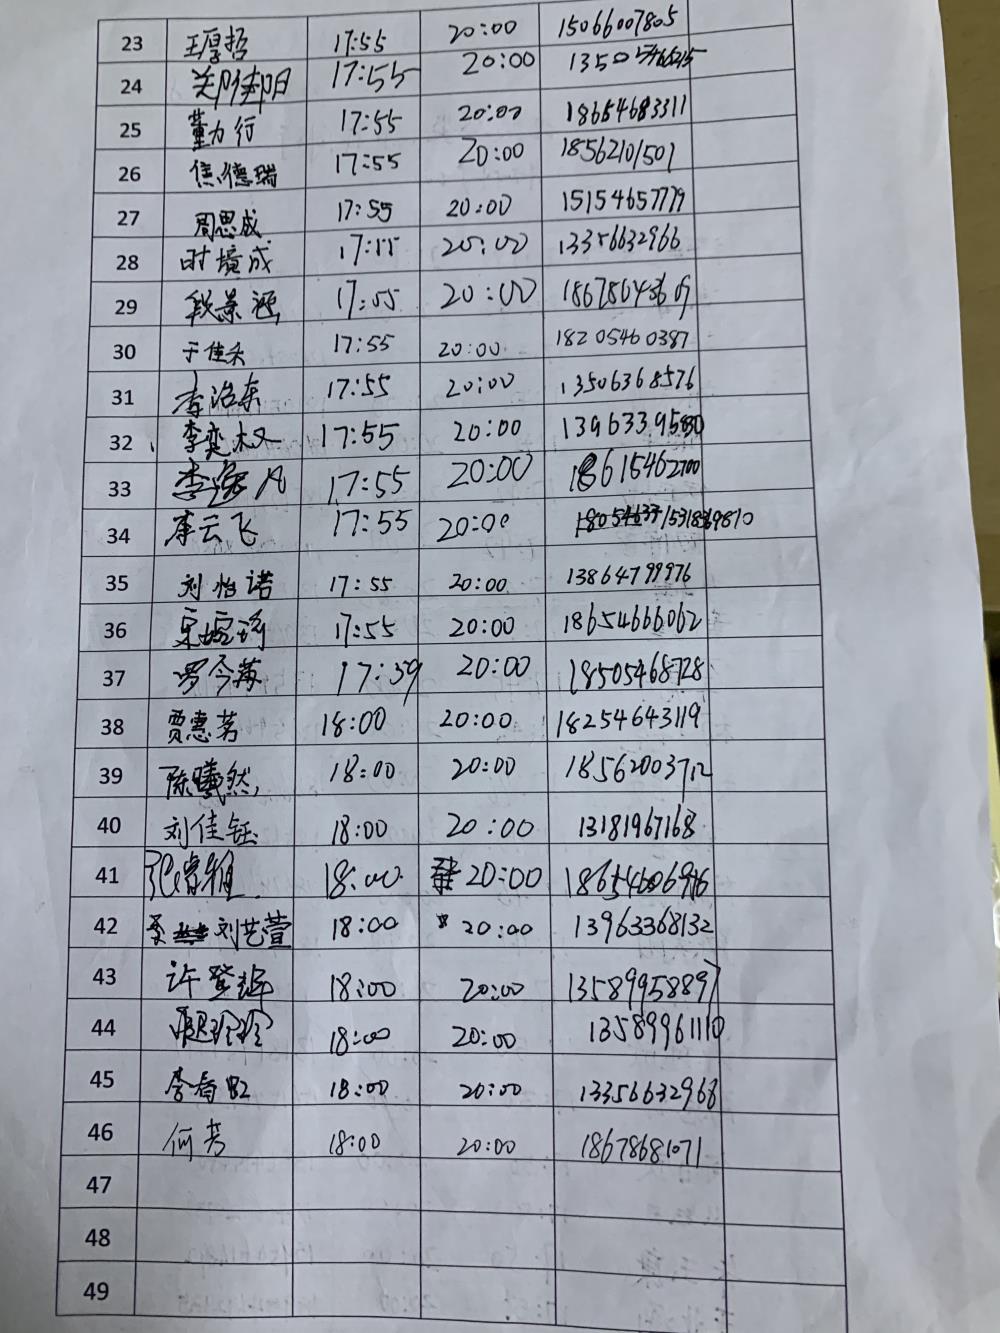 23 王厚哲 17:55 20:00 15066007805
24 郑佳阳 17:55 20:00
25 董力行 17:55 20:00 18654683311
26 焦德瑞 17:55 20:00 18562101501
27 周思成 17:55 20:00 15154657779
28 时境成 17:55 20:00 13356632966
29 段景涵 17:55 20:00
30 于佳禾 17:55 20:00 18205460387
31 李浩东 17:55 20:00 13506368576
32 李奕权 17:55 20:00
33 李逸凡 17:55 20:00 18615462700
34 李云飞 17:55 20:00
35 刘怡诺 17:55 20:00 13864799976
36 17:55 20:00 18654666062
37 罗今苒 17:59 20:00 18505468728
38 贾惠茗 18:00 20:00 18254643119
39 陈曦然 18:00 20:00 18562003712
40 刘佳钰 18:00 20:00 13181967168
41 张睿雅 18:00 20:00
42 刘艺萱 18:00 20:00 13963368132
43 许登峰 18:00 20:00 13589958897
44 18:00 20:00 13589961110
45 18:00 20:00 13356632968
46 何芳 18:00 20:00 18678681071
47
48
49